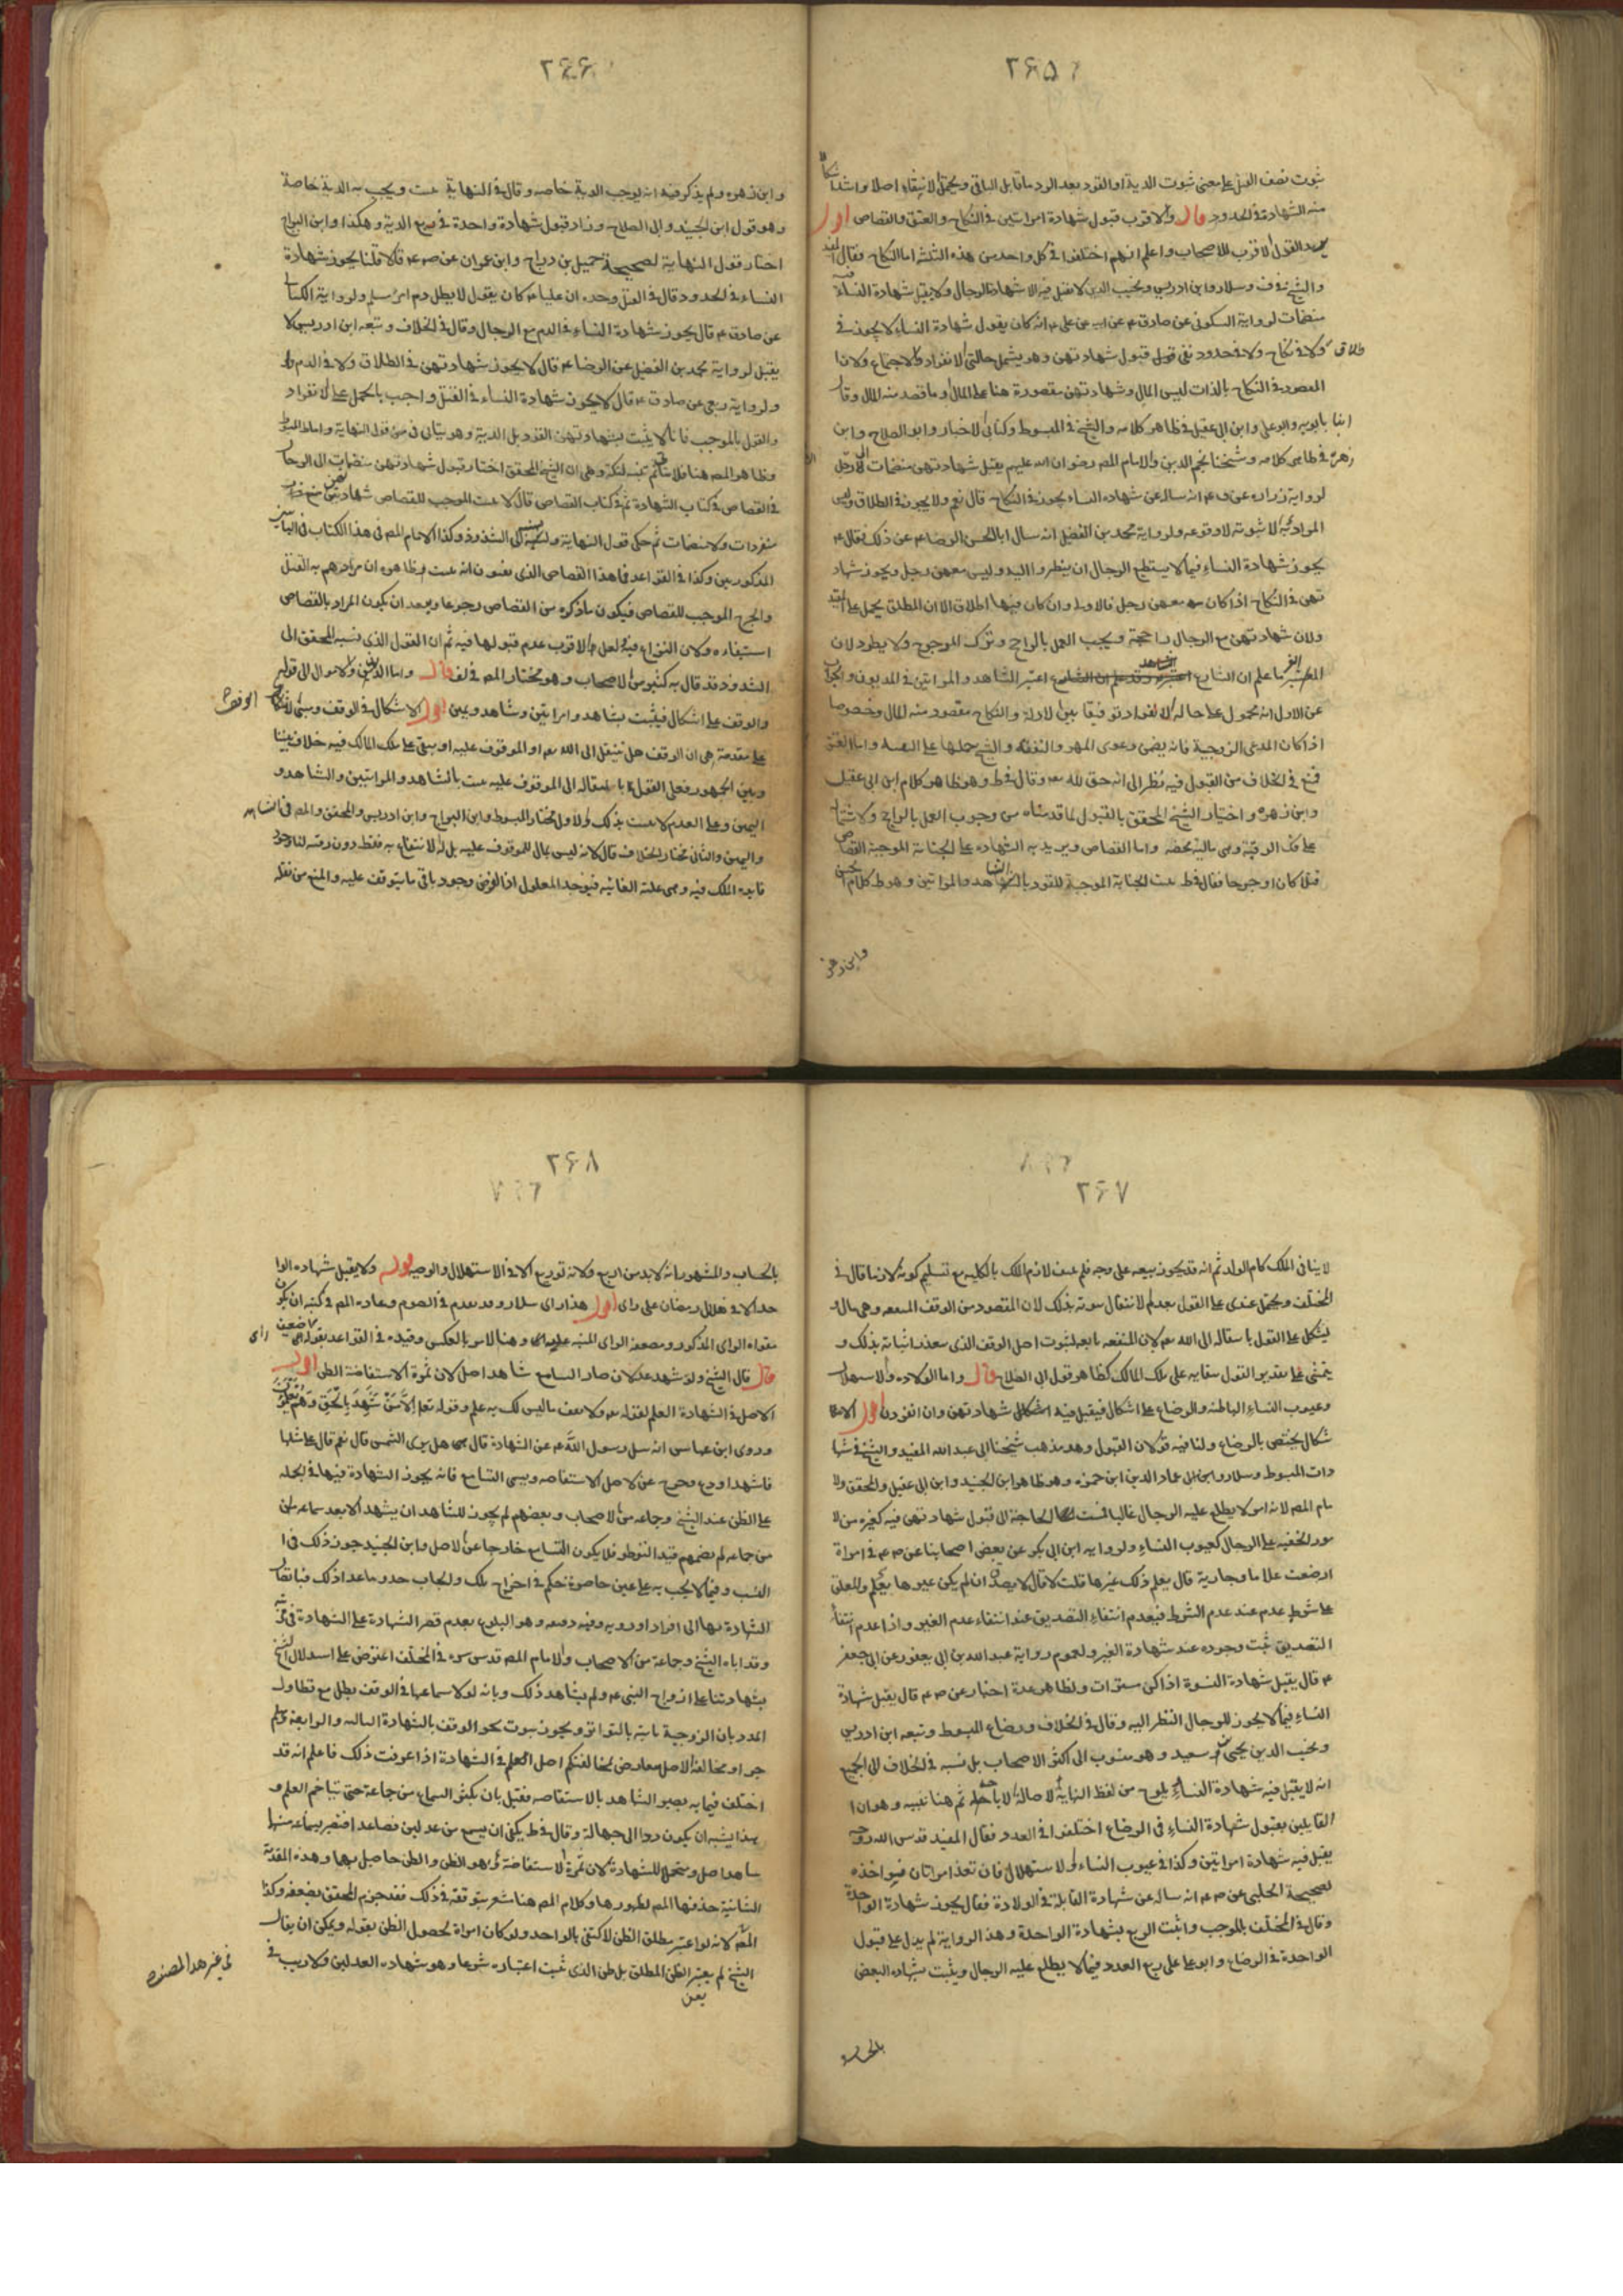 ۲۶۵
ثبوت نصف القتل على معنى ثبوت الدية او القود بعد الرد ما قابل الباقي ويحتمل الانتفاء اصلا واشد اشكالا
منه الشهادة في الحدود قال والاقرب قبول شهادة امراتين في النكاح والعتق والقصاص اقول
القول الاقرب للاصحاب واعلم انهم اختلفوا في كل واحد من هذه الثلثة اما النكاح فقال المفيد
والشيخ في ف وسلار وابن ادريس ونجيب الدين لا يقبل فيه الا شهادة الرجال ولا يقبل شهادة النساء فيه
منضمات لرواية السكوني عن صادق ع عن ابيه عن علي ع انه كان يقول شهادة النساء لا يجوز في
طلاق ولا في نكاح ولا في حدود نفى قبول شهادتهن وهو يشمل حالتي الانفراد والاجتماع ولان
المقصود في النكاح بالذات ليس المال وشهادتهن مقصورة هنا على المال وما قصد منه المال وقال
ابنا بابويه وابو علي وابن ابي عقيل في ظاهر كلامه والشيخ في المبسوط وكتابي الاخبار وابو الصلاح وابن
زهرة في ظاهر كلامه وشيخنا نجم الدين والامام المصـ رضوان الله عليهم يقبل شهادتهن منضمات الى الرجل
لرواية زرارة عن ق ع انه ساله عن شهادة النساء يجوز في النكاح قال نعم ولا يجوز في الطلاق وليس
المراد به الا ثبوته لا وقوعه ولرواية محمد بن الفضيل انه سال ابا الحسن الرضا ع عن ذلك فقال ع
يجوز شهادة النساء فيما لا يستطيع الرجال ان ينظروا اليه وليس معهن رجل ويجوز شهاد
تهن في النكاح اذا كان معهن رجل فالاولى وان كان فيها اطلاق الا ان المطلق يحمل على المقيد
ولان شهادتهن مع الرجال راجحة ويجب العمل بالراجح وترك المرجوح ولا يطرد لان
ما علم ان الشارع اعتبر الشاهد والمراتين في المديون والجواب
عن الاول انه محمول على حالة الانفراد توفيقا بين الادلة والنكاح مقصود منه المال وخصوصا
اذا كان المدعى الزوجية فانه يضمن دعوى المهر والنفقة والشيخ حملها على التقية واما العتق
فمنع في الخلاف من القبول فيه نظرا الى انه حق لله تعالى وقال في ط وهو ظاهر كلام ابن ابي عقيل
وابن زهرة واختيار الشيخ المحقق بالقبول لما قدمناه من وجوب العمل بالراجح ولاشتماله
على فك الرقبة وهي مالية محضه واما القصاص ويريد به الشهادة على الجناية الموجبة القصاص
قتلا كان او جرحا فقال في ط يثبت الجناية الموجبة للقود بالشاهد والمراتين وهو ط كلام الحسن
وابن زهرة
۲۶۶
وابن زهره ولم يذكر فيه انه يوجب الدية خاصه وقال في النهاية يثبت ويجب به الدية خاصة
وهو قول ابن الجنيد وابي الصلاح وزاد قبول شهادة واحدة في ربع الدية وهكذا وابن البراج
اختار قول النهاية لصحيحة جميل بن دراج وابن حمران عن ص ع قالا قلنا يجوز شهادة
النساء في الحدود قال في القتل وحده ان عليا ع كان يقول لا يطل دم امرئ مسلم ولرواية الكناني
عن صادق ع قال يجوز شهادة النساء في الدم مع الرجال وقال في الخلاف وتبعه ابن ادريس لا
يقبل لرواية محمد بن الفضيل عن الرضا ع قال لا يجوز شهادتهن في الطلاق ولا في الدم
ولرواية ربعي عن صادق ع قال لا يجوز شهادة النساء في القتل واجيب بالحمل على الانفراد
والقول بالموجب فانا لا يثبت بشهادتهن القود بل الدية وهو يتاتى في من قول النهاية واما المبسوط
وظاهر المصـ هنا فلا يتم تنبيه لنكتة وهي ان الشيخ المحقق اختار قبول شهادتهن منضمات الى الرجال
في القصاص في كتاب الشهادة ثم في كتاب القصاص قال لا يثبت الموجب للقصاص شهادتهن
منفردات ولا منضمات ثم حكى قول النهاية ونسبه الى الشذوذ وكذا الامام المصـ في هذا الكتاب في البابين
المذكورين وكذا في القواعد وظاهره ان مرادهم به القتل
والجرح الموجب للقصاص فيكون ما ذكره من القصاص رجوعا ويبعد ان يكون المراد بالقصاص
استيفاءه ولان النزاع فيه لعل الاقرب عدم قبولها فيه ثم ان القول الذي نسبه المحقق الى
الشذوذ قد قال به كثير من الاصحاب وهو مختار المصـ في لف قال واما الديون والاموال الى قوله
والوقف على اشكال فيثبت بشاهد وامراتين وشاهد ويمين اقول الاشكال في الوقف ومبنى الاشكال
على مقدمة هي ان الوقف هل ينتقل الى الله تعالى او الموقوف عليه او يبقى على ملك المالك فيه خلاف بيننا
وبين الجمهور فعلى القول بانتقاله الى الموقوف عليه يثبت بالشاهد والمراتين والشاهد و
اليمين وعلى العدم لا يثبت بذلك والاول مختار المبسوط وابن البراج وابن ادريس والمحقق والمصـ في
واليمين والثاني مختار الخلاف قال لانه ليس بمال للموقوف عليه بل له الانتفاع به فقط دون رقبته لنا وجود
فايدة الملك فيه وهي علته الغائية فيوجد المعلول اذ الفرض وجود باقي ما يتوقف عليه والمنع من نقله
۲۶۷
لا ينافي الملك كام الولد ثم انه قد يجوز بيعه على وجه فلم ينتف لازم الملك بالكلية مع تسليم كونه لازما قال في
المختلف ويحتمل عندي على القول بعدم الانتقال ثبوته بذلك لان المقصود من الوقف المنفعه وهي مال
ليشكل على القول بانتقاله الى الله تعالى لان المنفعه تابعه لثبوت اصل الوقف الذي يتعذر اثباته بذلك و
يتمشى على تقدير القول ببقائه على ملك المالك كظاهر قول ابي الصلاح قال واما الولادة والاستهلال
وعيوب النساء الباطنه والرضاع على اشكال فيقبل فيه شهادتهن وان انفردن اقول الا
شكال يختص بالرضاع ولنا فيه قولان القبول وهو مذهب شيخنا ابي عبد الله المفيد والشيخ في شها
دات المبسوط وسلار وابن عماد الدين ابن حمزه وهو ظاهر ابن الجنيد وابن ابي عقيل والمحقق والا
مام المصـ لانه امر لا يطلع عليه الرجال غالبا فمست الحاجة الى قبول شهادتهن فيه كغيره من الا
مور الخفيه على الرجال كعيوب النساء ولرواية ابن ابي بكر عن بعض اصحابنا عن ص ع في امراة
ارضعت غلاما وجارية قال يعلم ذلك غيرها قلت لا قال لا يصدق ان لم يكن غيرها يعلم والمعلق
على شرط عدم عند عدم الشرط فيعدم انتفاء التصديق عند انتفاء عدم الغير واذا عدم انتفاء
التصديق ثبت وجوده عند شهادة الغير ولعموم رواية عبد الله بن ابي يعفور عن ابي جعفر
ع قال يقبل شهادة النسوة اذا كن مستورات ولظاهر عدة اخبار عن ص ع قال يقبل شهادة
النساء فيما لا يجوز للرجال النظر اليه وقال في الخلاف ورضاع المبسوط وتبعه ابن ادريس
ونجيب الدين يحيى بن سعيد وهو منسوب الى اكثر الاصحاب بل نسبه في الخلاف الى الجميع
انه لا يقبل فيه شهادة النساء يلوح من لفظ النهاية لاصالة الاباحة ثم هنا تنبيه وهو ان
القايلين بقبول شهادة النساء في الرضاع اختلفوا في العدد فقال المفيد قدس الله روحه
يقبل فيه شهادة امراتين وكذا في عيوب النساء والاستهلال فان تعذر امراتان فبواحدة
لصحيحة الحلبي عن ص ع انه ساله عن شهادة القابلة في الولادة فقال يجوز شهادة الواحدة
وقال في المختلف بالموجب واثبت الربع بشهادة الواحدة وهذ الرواية لم يدل على قبول
الواحدة في الرضاع وابو علي على ربع العدد فيما لا يطلع عليه الرجال ويثبت بشهادة البعض
بالحساب
۲۶۸
بالحساب والمشهور انه لا بد من اربع ولانه توزيع الا في الاستهلال والوصيه قوله ولا يقبل شهادة الوا
حد الا في هلال رمضان على راي اقول هذا راي سلار وقد تقدم في الصوم وعادة المصـ في كتبه ان يكون
مقواه الراي المذكور ومضعفه الراي المنبه عليه وهنا الامر بالعكس وقيده في القواعد بقوله راي
قال قال الشيخ ولو شهد عدلان صار السامع شاهد اصل لان ثمرة الاستفاضة الظن اقول
الاصل في الشهادة العلم لقوله تعالى ولا تقف ما ليس لك به علم وقوله تعالى الا من شهد بالحق وهم يعلمون
وروى ابن عباس انه سئل رسول الله ص عن الشهادة قال هل ترى الشمس قال نعم قال على مثلها
فاشهد او دع وخرج عن الاصل الاستفاضه ويسمى التسامع فانه يجوز الشهادة فيها في الجمله
على الظن عند الشيخ وجماعه من الاصحاب وبعضهم لم يجوز للشاهد ان يشهد الا بعد سماعه من
من جماعه لم يضمهم قيد التواطؤ فلا يكون التسامع خارجا عن الاصل وابن الجنيد جوز ذلك في
النسب وفيما لا يجب به على عين حاضرة حكم في اخراج ملك وايجاب حد وما عدا ذلك
الشهادة بها الى افراد او رويه وفيه دقيقه وهو التلويح بعدم قصر الشهادة على الشهادة في مرتبه
وقد اباه الشيخ وجماعة من الاصحاب والامام المصـ قدس سره في المختلف اعترض على استدلال الشيخ
بشهادتنا على ازواج النبي ع ولم يشاهد ذلك وبانه لولا سماعها في الوقف يطل مع تطاول
المدد بان الزوجية ثابته بالتواتر ويجوز ثبوت نحو الوقف بالشهادة الثالثه والرابعة وهلم
جرا ومخالفة الاصل معارض لمخالفتكم اصل العلم في الشهادة اذا عرفت ذلك فاعلم انه قد
اختلف فيما به يصير الشاهد بالاستفاضه فقيل بان يكثر السماع من جماعة حتى يتاخم العلم و
هذا يشبه ان يكون ردا الى جهالة وقال في ط يكفي ان يسمع من عدلين فصاعدا فيصير بسماعه منهما
شاهد اصل ومتحملا للشهادة لان ثمرة الاستفاضة هو الظن والظن حاصل بهما وهذه المقدمة
الثانية حذفها المصـ لظهورها وكلام المصـ هنا مشعر بتوقفه في ذلك فقد جزم المحقق بضعفه وكذا
المصـ لانه لو اعتبر مطلق الظن لاكتفي بالواحد ولو كان امراة لحصول الظن بقوله ويمكن ان يقال
الشيخ لم يعتبر الظن المطلق بل ظن الذي ثبت اعتباره شرعا وهو شهادة العدلين ولا ريب في